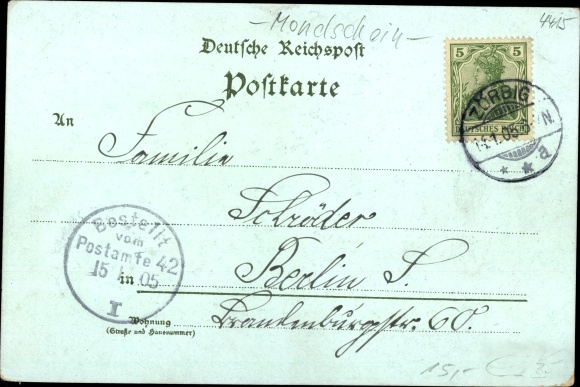 -Mondschein-
4415
Deutsche Reichspost
Postkarte
5 5
DEUTSCHES REICH
ZÖRBIG
14.1.05
N.
* * a
An
Familie
Schröder
in Berlin S.
Brandenburgstr. 60.
Wohnung
(Straße und Hausnummer)
Bestellt
vom
Postamte 42
15 1.05
I
15,-